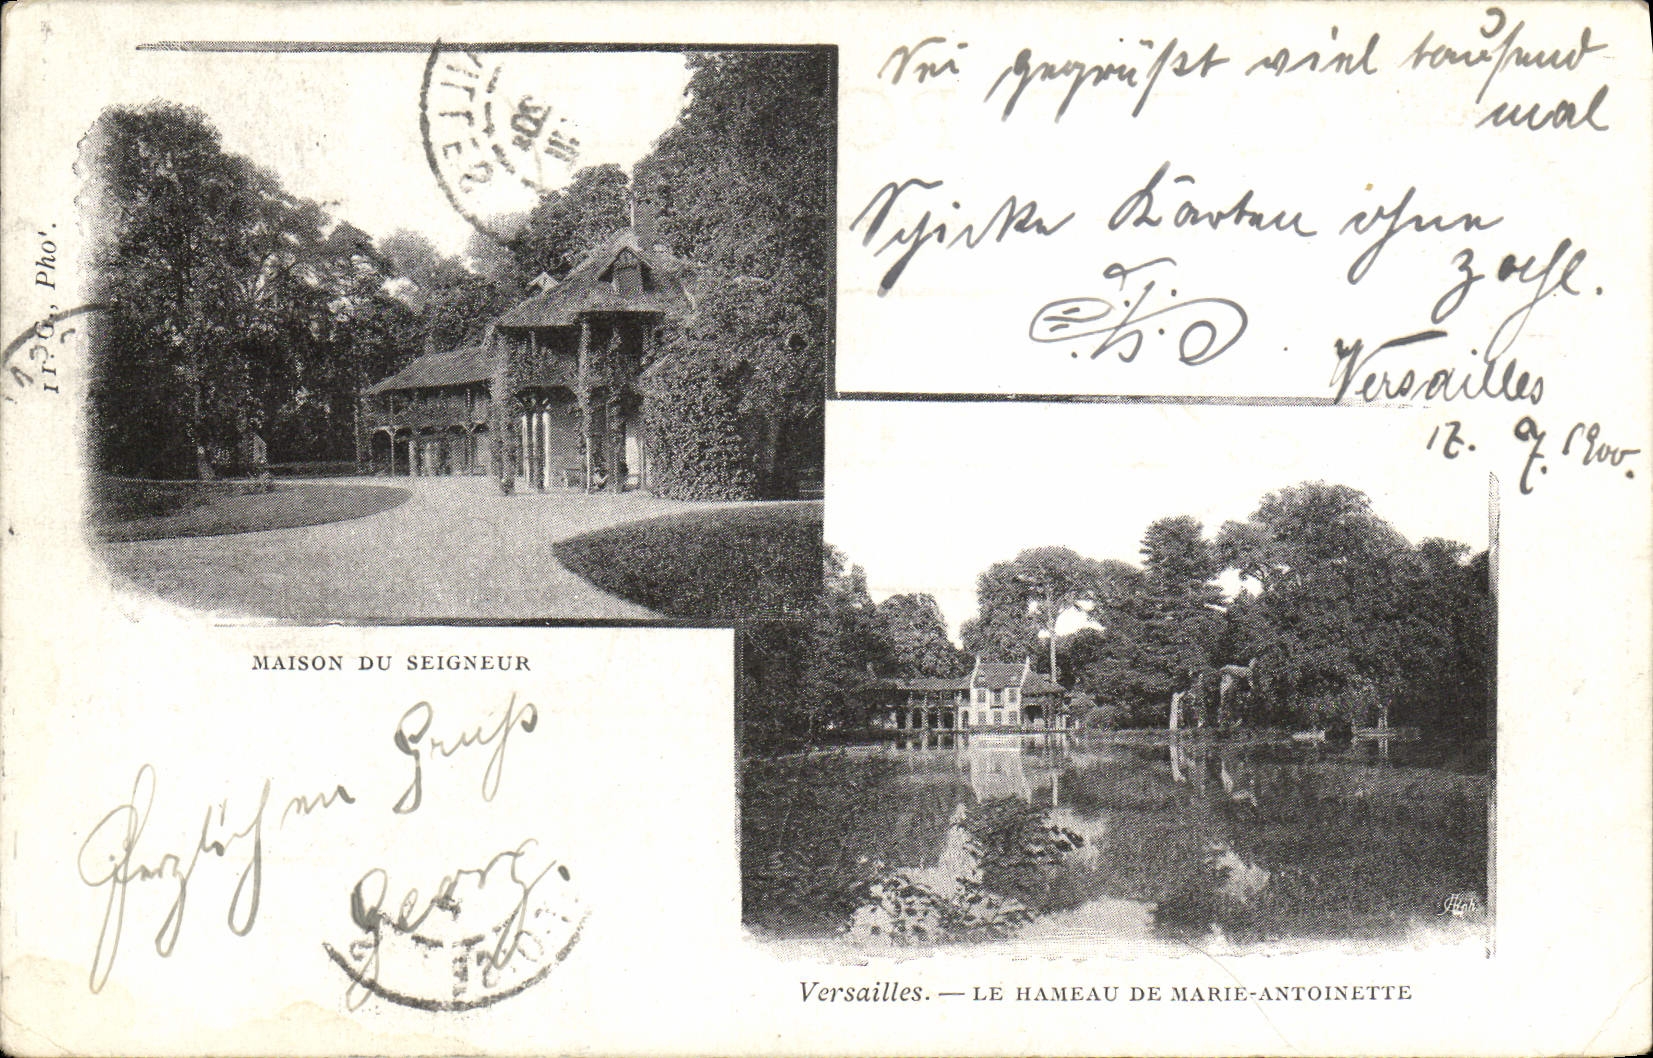 Sei gegrüßt viel tausend
mal
Schicke Karten ohne
Zahl.
Versailles
17. 9. 1900.
11 G., Phot.
MAISON DU SEIGNEUR
Herzlichen Gruß
Georg.
Versailles. — LE HAMEAU DE MARIE-ANTOINETTE